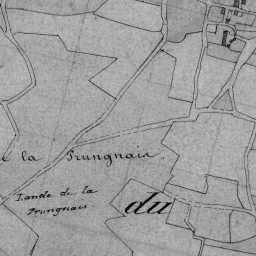 la Prungnais.
Lande de la
Prungnais
du